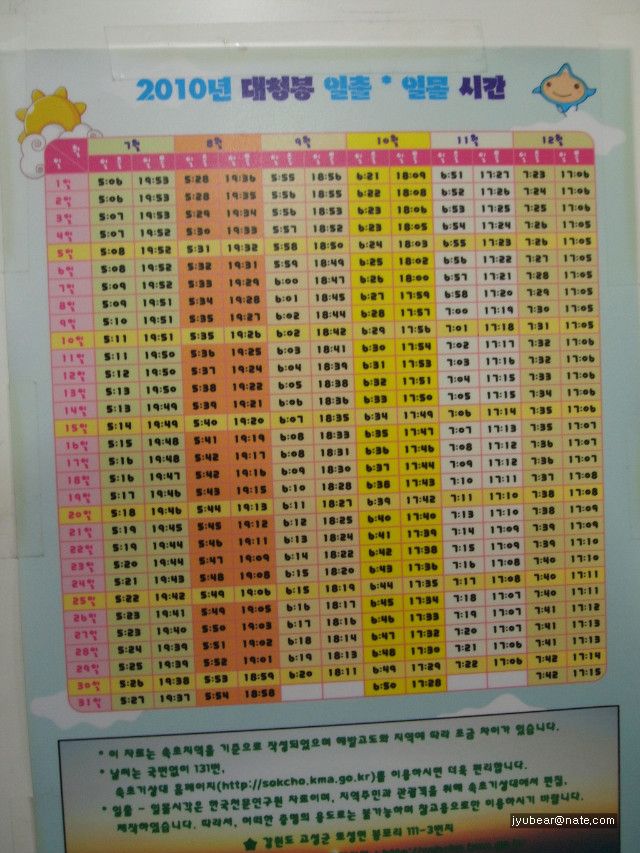 2010년 대청봉 일출 * 일몰 시간
월 7월 8월 9월 10월 11월 12월
일 일출 일몰 일출 일몰 일출 일몰 일출 일몰 일출 일몰 일출 일몰
1일 5:06 19:53 5:28 19:36 5:55 18:56 6:21 18:09 6:51 17:27 7:23 17:06
2일 5:06 19:53 5:28 19:35 5:56 18:55 6:22 18:08 6:52 17:26 7:24 17:06
3일 5:07 19:53 5:29 19:34 5:56 18:53 6:23 18:06 6:53 17:25 7:25 17:06
4일 5:07 19:52 5:30 19:33 5:57 18:52 6:23 18:05 6:54 17:24 7:26 17:05
5일 5:08 19:52 5:31 19:32 5:58 18:50 6:24 18:03 6:55 17:23 7:26 17:05
6일 5:08 19:52 5:32 19:31 5:59 18:49 6:25 18:02 6:56 17:22 7:27 17:05
7일 5:09 19:52 5:33 19:29 6:00 18:47 6:26 18:00 6:57 17:21 7:28 17:05
8일 5:09 19:51 5:34 19:28 6:01 18:45 6:27 17:59 6:58 17:20 7:29 17:05
9일 5:10 19:51 5:35 19:27 6:02 18:44 6:28 17:57 7:00 17:19 7:30 17:05
10일 5:11 19:51 5:35 19:26 6:02 18:42 6:29 17:56 7:01 17:18 7:31 17:05
11일 5:11 19:50 5:36 19:25 6:03 18:41 6:30 17:54 7:02 17:17 7:32 17:05
12일 5:12 19:50 5:37 19:24 6:04 18:39 6:31 17:53 7:03 17:16 7:32 17:06
13일 5:13 19:50 5:38 19:22 6:05 18:38 6:32 17:51 7:04 17:15 7:33 17:06
14일 5:13 19:49 5:39 19:21 6:06 18:36 6:33 17:50 7:05 17:15 7:34 17:06
15일 5:14 19:49 5:40 19:20 6:07 18:35 6:34 17:49 7:06 17:14 7:35 17:06
16일 5:15 19:48 5:41 19:19 6:08 18:33 6:35 17:47 7:07 17:13 7:35 17:07
17일 5:16 19:48 5:42 19:17 6:08 18:31 6:36 17:46 7:08 17:12 7:36 17:07
18일 5:16 19:47 5:42 19:16 6:09 18:30 6:37 17:44 7:09 17:12 7:36 17:07
19일 5:17 19:46 5:43 19:15 6:10 18:28 6:38 17:43 7:10 17:11 7:37 17:08
20일 5:18 19:46 5:44 19:13 6:11 18:27 6:39 17:42 7:11 17:10 7:38 17:08
21일 5:19 19:45 5:45 19:12 6:12 18:25 6:40 17:40 7:13 17:10 7:38 17:09
22일 5:19 19:44 5:46 19:11 6:13 18:24 6:41 17:39 7:14 17:09 7:39 17:09
23일 5:20 19:44 5:47 19:09 6:14 18:22 6:42 17:38 7:15 17:09 7:39 17:10
24일 5:21 19:43 5:48 19:08 6:15 18:20 6:43 17:36 7:16 17:08 7:40 17:10
25일 5:22 19:42 5:49 19:06 6:15 18:19 6:44 17:35 7:17 17:08 7:40 17:11
26일 5:23 19:41 5:49 19:05 6:16 18:17 6:45 17:34 7:18 17:07 7:40 17:11
27일 5:23 19:40 5:50 19:03 6:17 18:16 6:46 17:33 7:19 17:07 7:41 17:12
28일 5:24 19:39 5:51 19:02 6:18 18:14 6:47 17:32 7:20 17:07 7:41 17:13
29일 5:25 19:39 5:52 19:01 6:19 18:13 6:48 17:30 7:21 17:06 7:41 17:13
30일 5:26 19:38 5:53 18:59 6:20 18:11 6:49 17:29 7:22 17:06 7:42 17:14
31일 5:27 19:37 5:54 18:58 6:50 17:28 7:42 17:15
* 이 자료는 속초지역을 기준으로 작성되었으며 해발고도와 지역에 따라 조금 차이가 있습니다.
* 날씨는 국번없이 131번,
속초기상대 홈페이지(http://sokcho.kma.go.kr)를 이용하시면 더욱 편리합니다.
* 일출 - 일몰시각은 한국천문연구원 자료이며, 지역주민과 관광객을 위해 속초기상대에서 편집,
제작하였습니다. 따라서, 어떠한 증명의 용도로는 불가능하며 참고용으로만 이용하시기 바랍니다.
강원도 고성군 토성면 봉포리 111-3번지
jyubear@nate.com